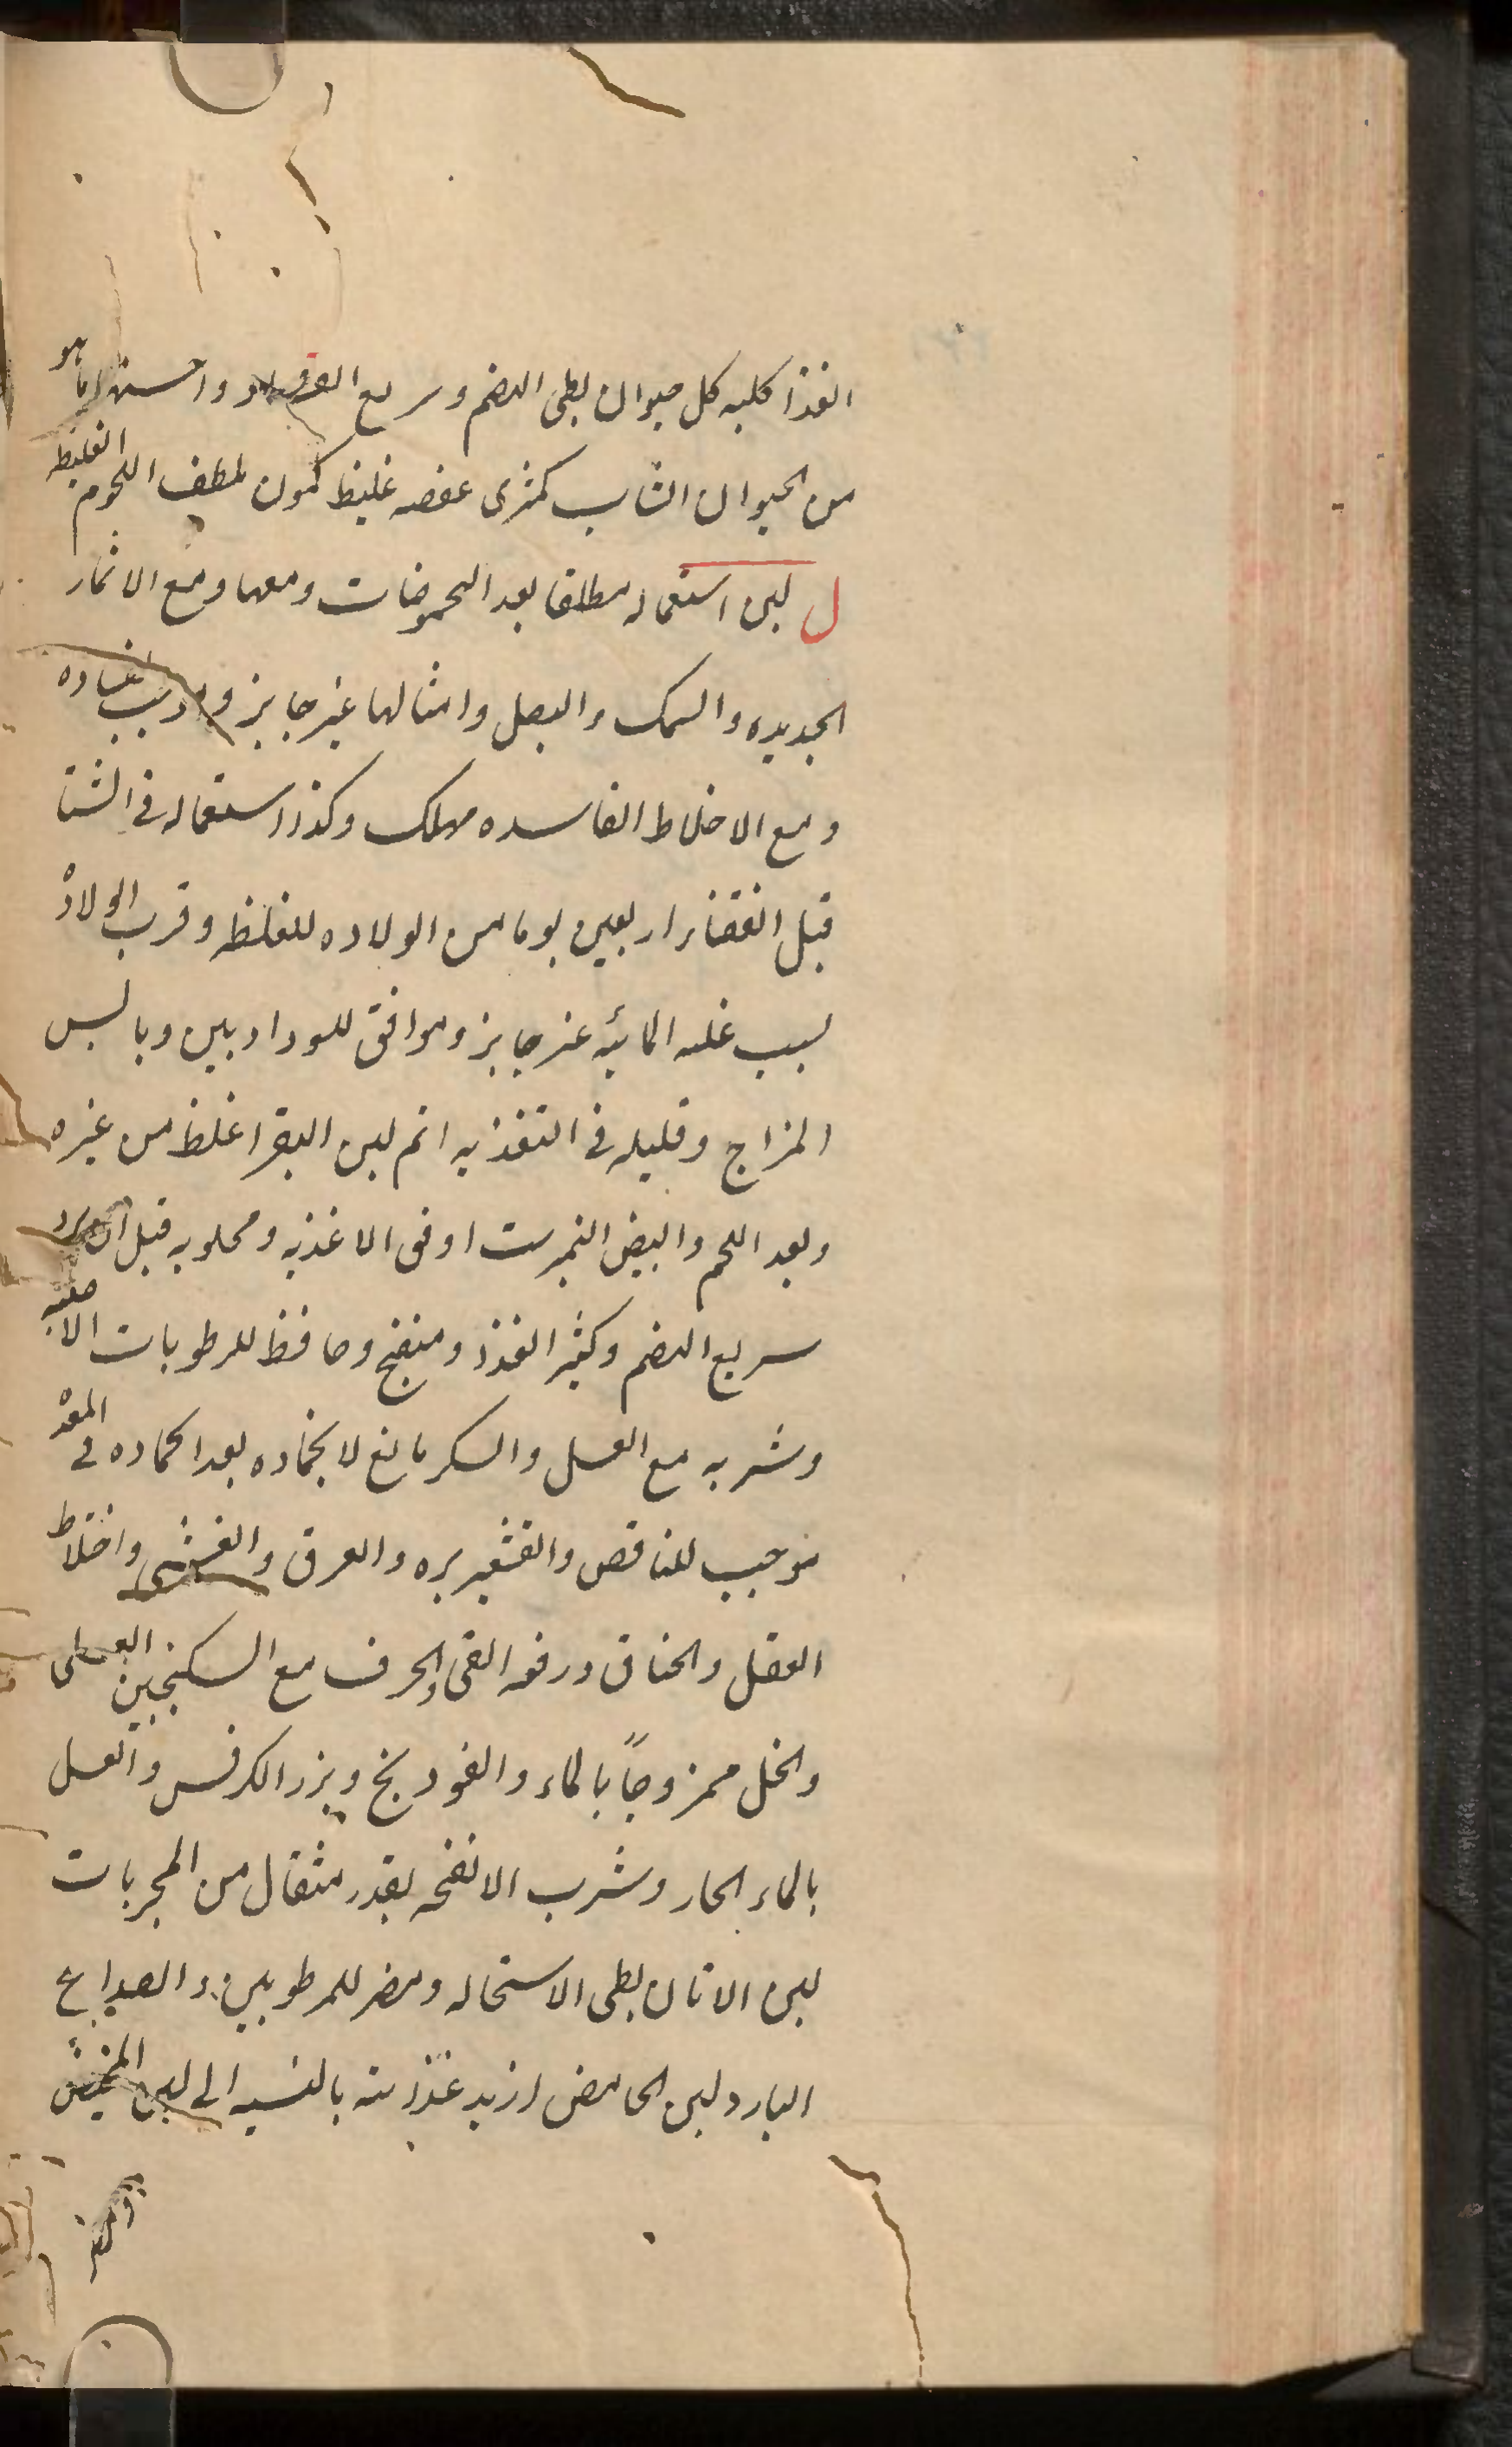 الغذا كليه كل حيوان بطى الهضم وسريع الفساد واحسنها ما هو
من الحيوان الشاب كمثرى عفصه غليظ كمون ملطف اللحوم الغليظه
ل لبن استعماله مطلقا بعد الحموضات ومعها ومع الاثمار
الجديده والسمك والبصل وامثالها غير جايز
ومع الاخلاط الفاسده مهلك وكذا استعماله فى الشتا
قبل انقضاء اربعين يوما من الولاده للغلظه وقرب الولادة
لسبب غلبه المائيه غير جايز وموافق للسوداويين ويابس
المزاج وقليله فى التغذيه اتم لبن البقر اغلظ من غيره
وبعد اللحم والبيض النمبرست اوفق الاغذيه ومحلوبه قبل ان يبرد
سريع الهضم وكثير الغذا ومنضج وحافظ للرطوبات الاصليه
وشربه مع العسل والسكر مانع لانجماده بعد انجماده فى المعدة
موجب للنافض والقشعريره والعرق والغشى واختلاط
العقل والخناق ورفعه القى والحرف مع السكنجبين العسلى
والخل ممزوجاً بالماء والفودنج وبزر الكرفس والعسل
بالماء الحار وشرب الانفحه بقدر مثقال من المجربات
لبن الاتان بطى الاستحاله ومضر للمرطوبين والصداع
البارد لبن الحامض ازيد غذائيته بالنسبه الى لبن المخيض